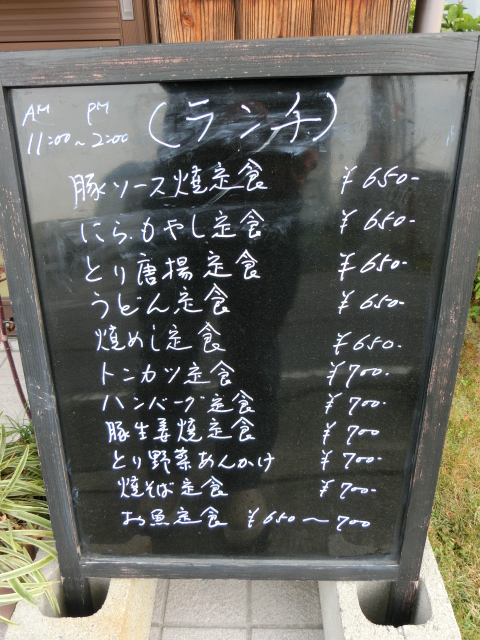 AM PM
11:00~2:00 (ランチ)
豚ソース焼定食 ¥650-
にらもやし定食 ¥650-
とり唐揚定食 ¥650-
うどん定食 ¥650-
焼めし定食 ¥650-
トンカツ定食 ¥700-
ハンバーグ定食 ¥700-
豚生姜焼定食 ¥700
とり野菜あんかけ ¥700-
焼そば定食 ¥700-
お魚定食 ¥650~700